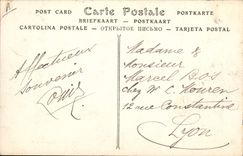 POST CARD Carte Postale POSTKARTE
BRIEFKAART - POSTKAART
CARTOLINA POSTALE - ОТКРЫТОЕ ПИСЬМО - TARJETA POSTAL
Affectueux
souvenir
Madame &
Monsieur
Marcel Bos
chez Mr C. Mouren
12 rue Constantine
Lyon